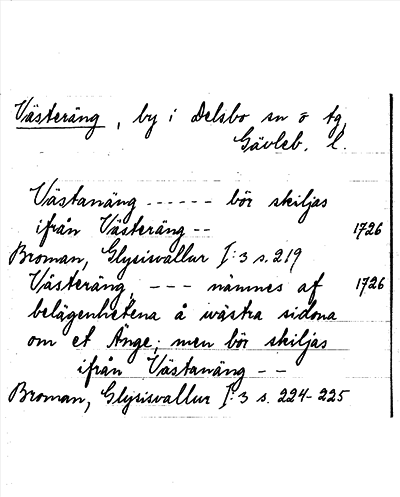 Västeräng, by i Delsbo sn o tg,
Gävleb. l.
Västanäng ------ bör skiljas
ifrån Västeräng -- 1726
Broman, Glysisvallur I:3 s. 219
Västeräng, --- nämnes af 1726
belägenhetena å wästra sidona
om et Änge; men bör skiljas
ifrån Västanäng --
Broman, Glysisvallur I:3 s. 224-225